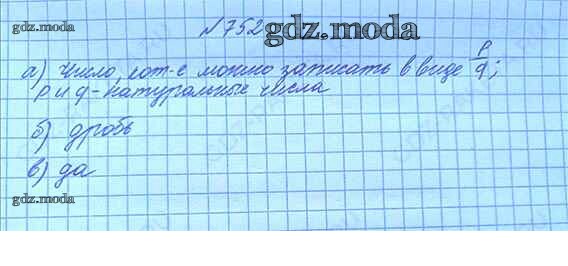 gdz.moda
№752 gdz.moda
а) Число, кот-е можно записать в виде p/q;
p и q - натуральные числа
б) дробь
в) да
gdz.moda